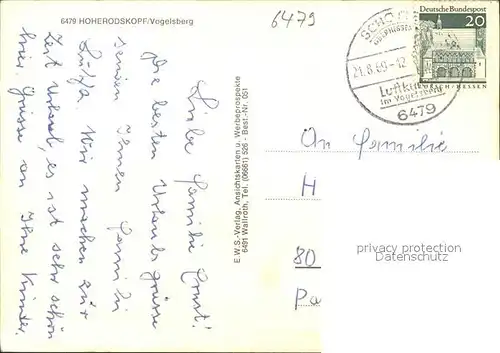 6479 HOHERODSKOPF/Vogelsberg
6479
Liebe Familie Ernst!
Die besten Urlaubsgrüsse
senden Ihnen Familie
Wir machen zur
Zeit Urlaub, es ist sehr schön
hier. Grüsse an Ihre Kinder.
E.W.S.-Verlag, Ansichtskarten u. Werbeprospekte
6491 Wallroth, Tel. (06661) 526 - Best.-Nr. 051
Deutsche Bundespost
20
LORSCH/HESSEN
SCHOTTEN
21.8.69-12
Luftkurort
im Vogelsberg
6479
An Familie
H
80
Pa
privacy protection
Datenschutz